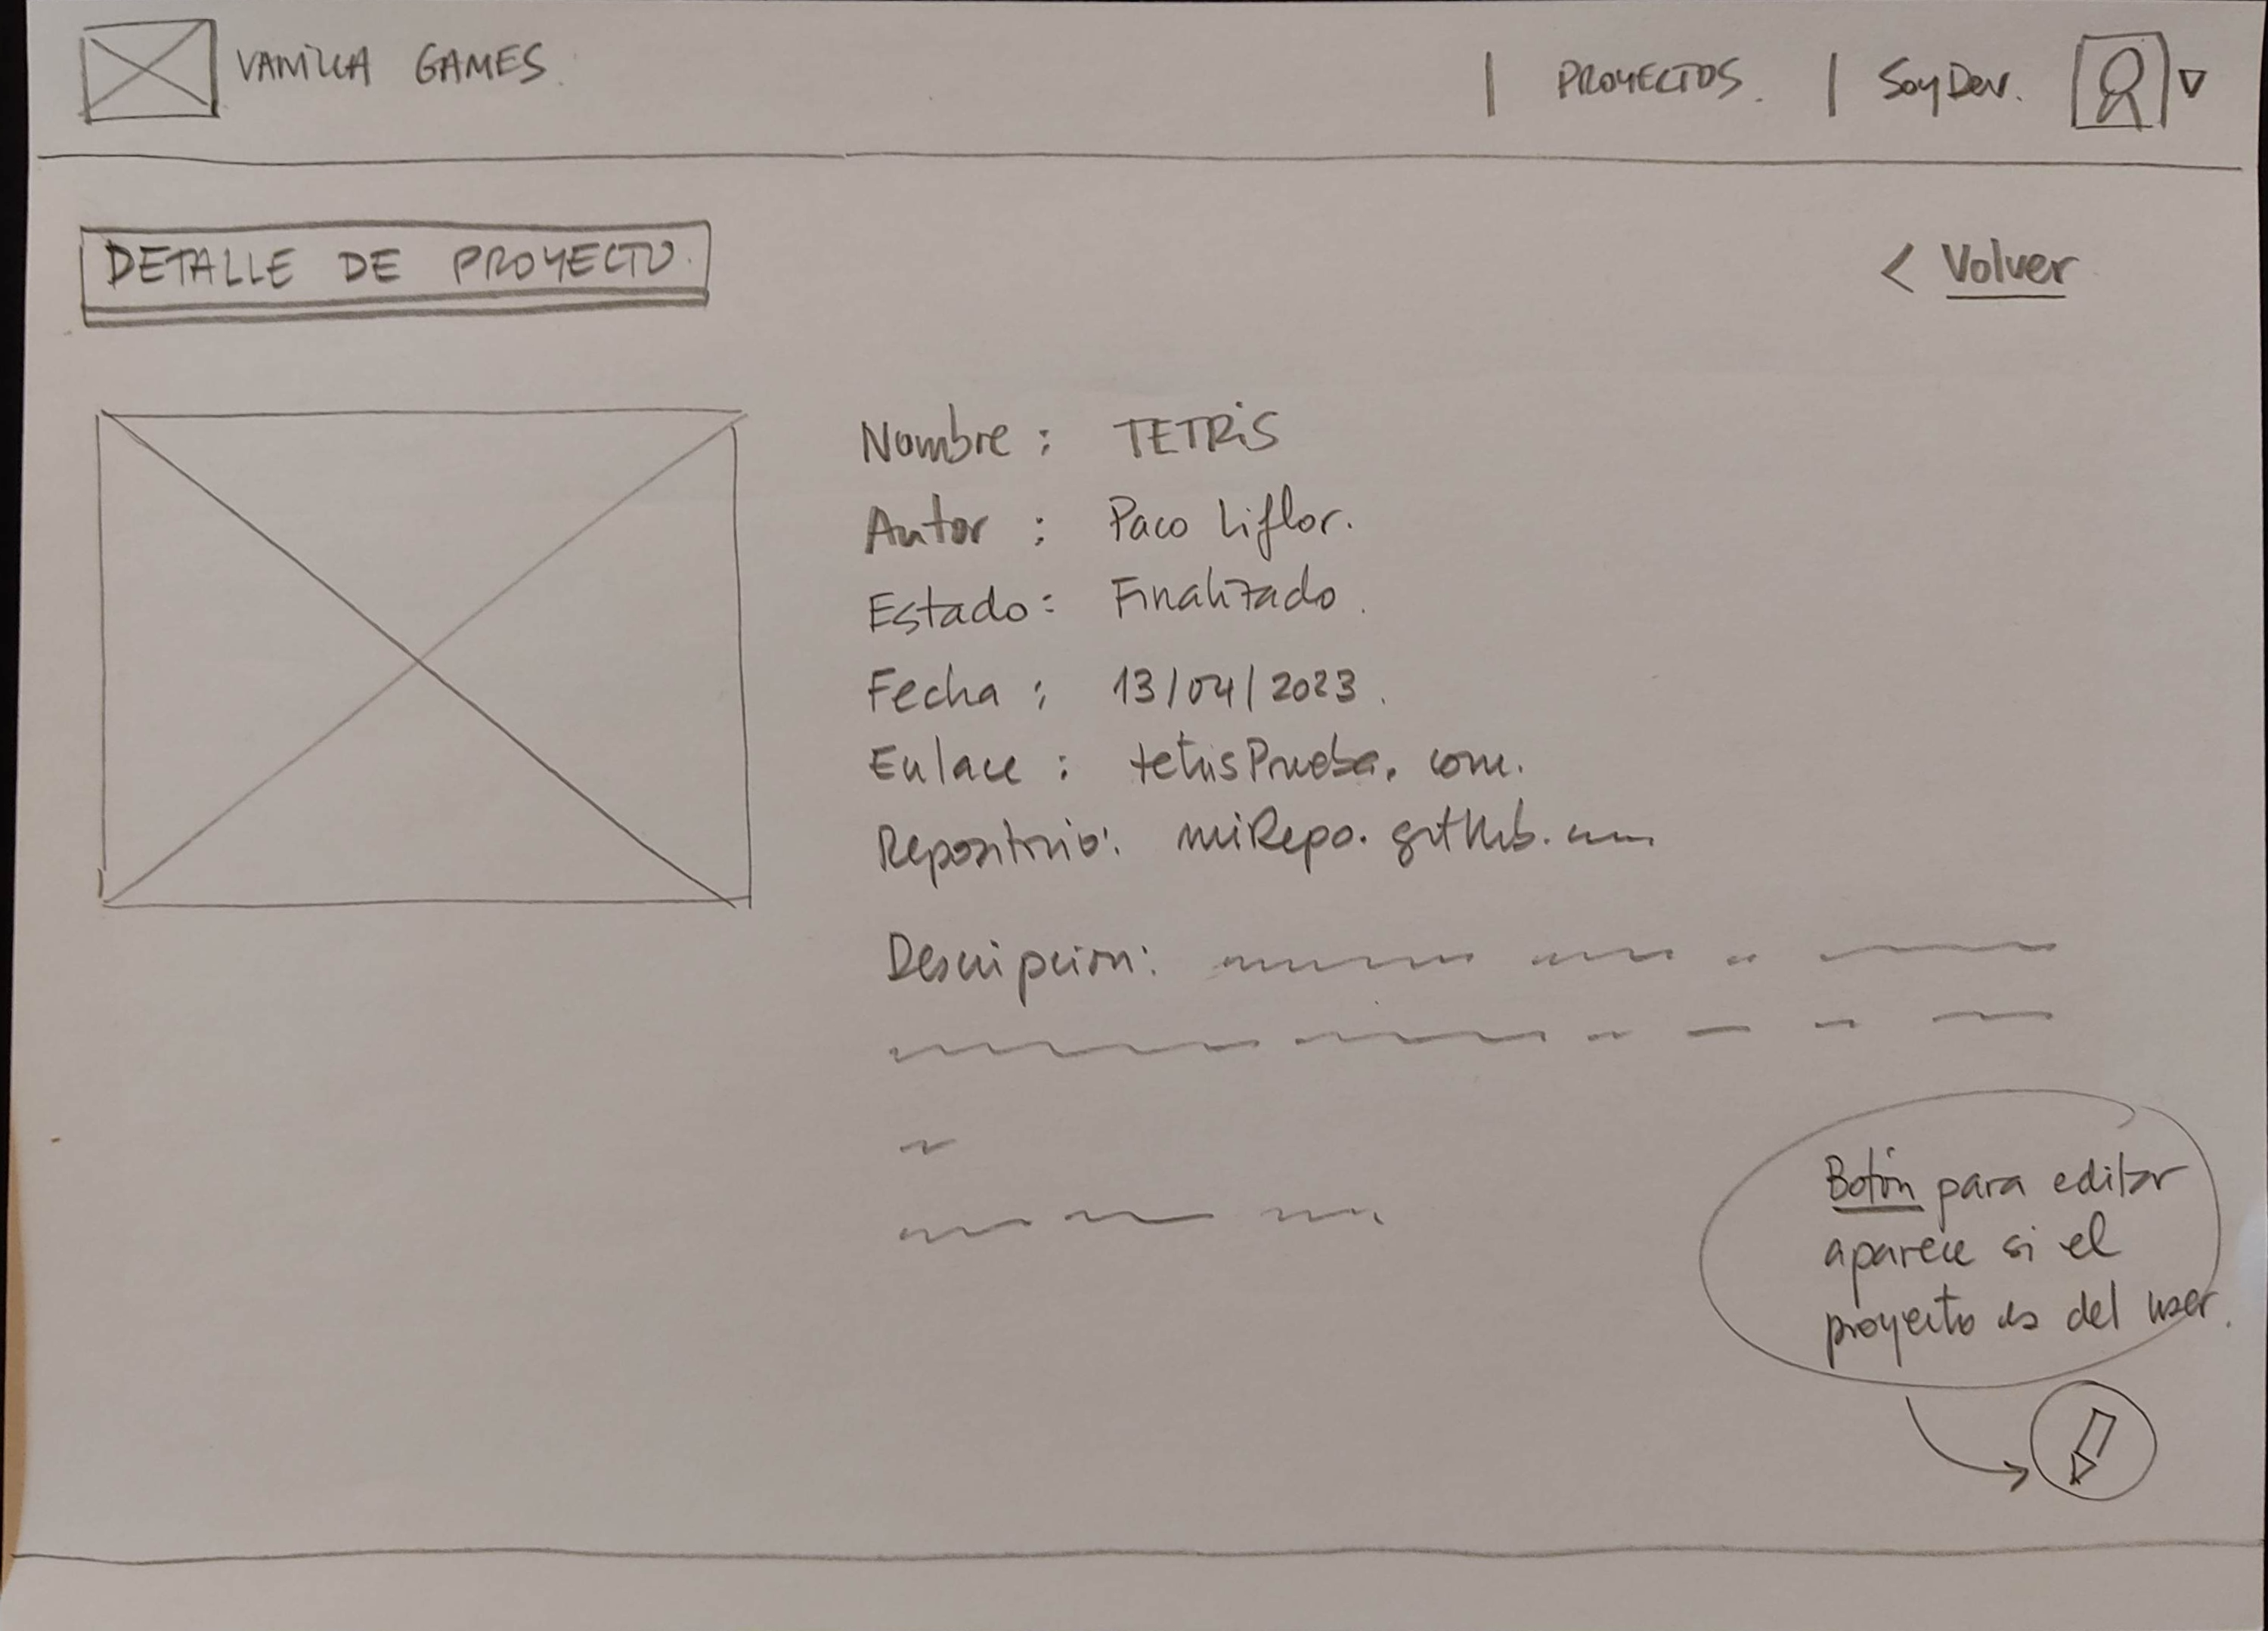 VANILLA GAMES.
| PROYECTOS. | Soy Dev.
DETALLE DE PROYECTO.
< Volver
Nombre : TETRiS
Autor : Paco Liflor.
Estado : Finalizado.
Fecha : 13/04/2023.
Enlace : tetrisPrueba.com.
Repositorio: miRepo.gitHub.com
Descripcion:
Botón para editar
aparece si el
proyecto es del user.